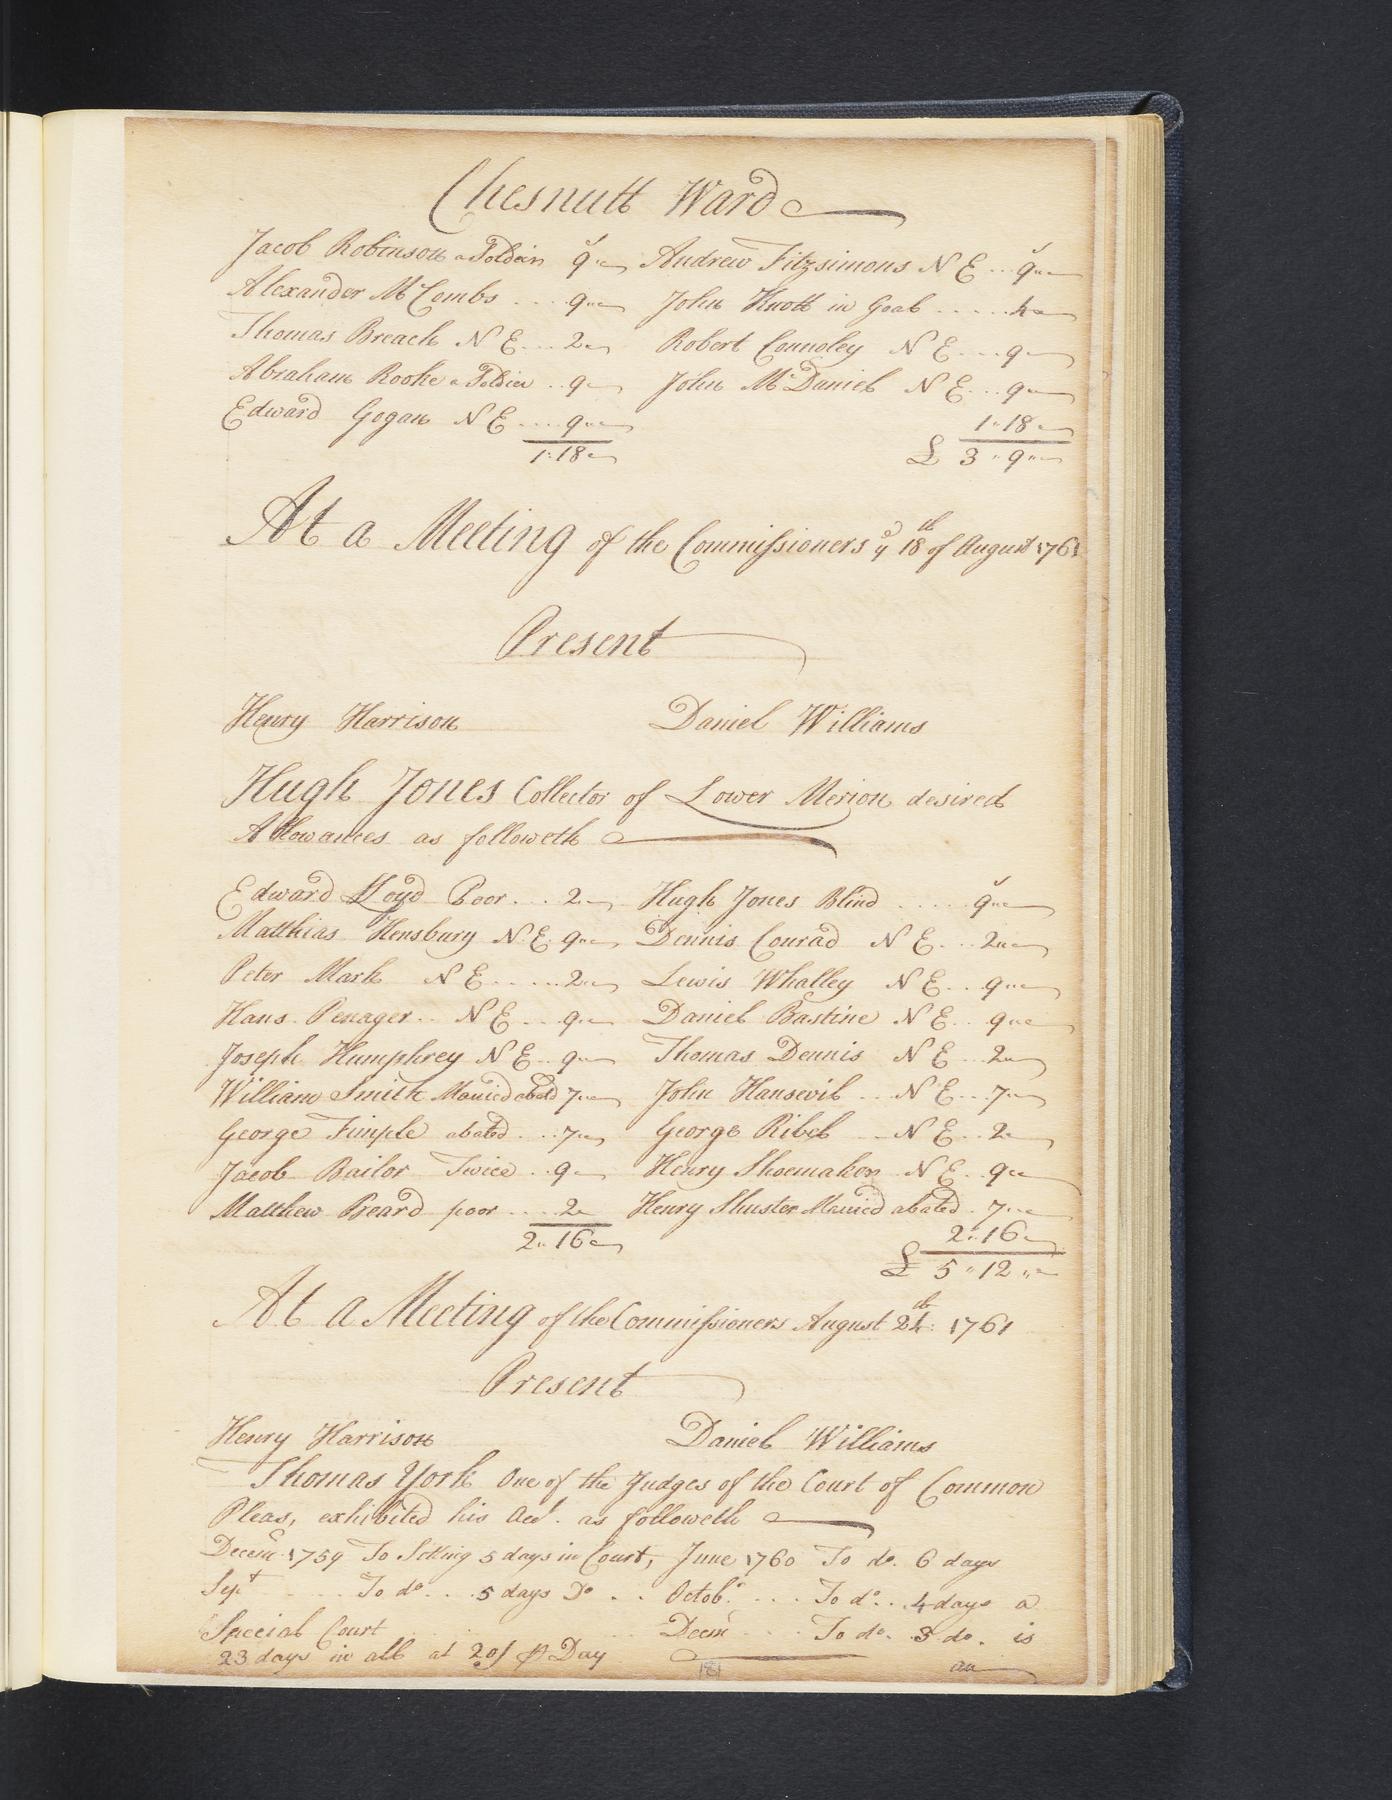 Chesnutt Ward
Jacob Robinson a Soldier 9 s Andrew Fitzsimons N E .. 9 s
Alexander McCombs .... 9 John Knott in Goal ..... 4
Thomas Breach N E ... 2 Robert Connoley N E ... 9
Abraham Rooke a Soldier .. 9 John McDaniel N E ... 9
Edward Gogan N E .... 9 1"18
1"18 £ 3"9
At a Meeting of the Commissioners ye 18th of August 1761
Present
Henry Harrison Daniel Williams
Hugh Jones Collector of Lower Merion desired
Allowances as followeth
Edward Lloyd Poor ... 2 Hugh Jones Blind ..... 9 s
Matthias Hensbury N E. 9 Dennis Conrad N E ... 2
Peter Mark N E ..... 2 Lewis Whalley N E ... 9
Hans Penager .. N E ... 9 Daniel Bastine N E .. 9
Joseph Humphrey N E .. 9 Thomas Dennis N E ... 2
William Smith Married abated 7 John Hansevil ... N E ... 7
George Fimple abated ... 7 George Ribel N E .. 2
Jacob Bailor Twice .. 9 Henry Shoemaker N E .. 9
Matthew Beard poor .... 2 Henry Shuster Married abated . 7
2"16 2"16
£ 5"12
At a Meeting of the Commissioners August 24th: 1761
Present
Henry Harrison Daniel Williams
Thomas York One of the Judges of the Court of Common
Pleas, exhibited his Acct. as followeth
Decemr. 1759 To Sitting 5 days in Court, June 1760 To do. 6 days
Sept ... To do ... 5 days Do .. Octobr. ... To do .. 4 days a
Special Court Decmr To do. 3 do. is
23 days in all at 20/ ⅌ Day
181